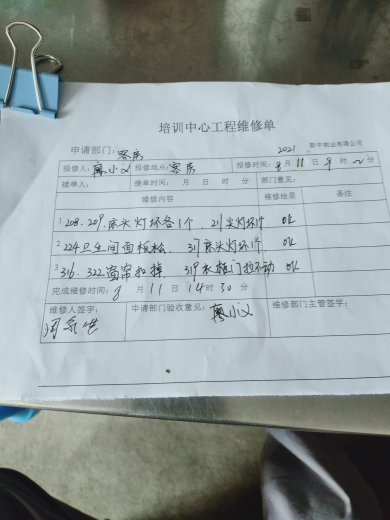 培训中心工程维修单
申请部门：客房 2021 新中铜业有限公司
报修人：廖小义 报修地点：客房 报修时间：8月11日 9时 分
接单人： 接单时间： 月 日 时 分 部门意见：
维修内容 维修结果 备注
1 208、209、床头灯坏各1个、211 灯坏1个 OK
2 224卫生间面板松、317床头灯坏1个 OK
3 316、322窗帘扣掉、319木柜门拉不动 OK
完成维修时间：8月11日14时30分
维修人签字： 申请部门验收意见：廖小义 维修部门主管签字：